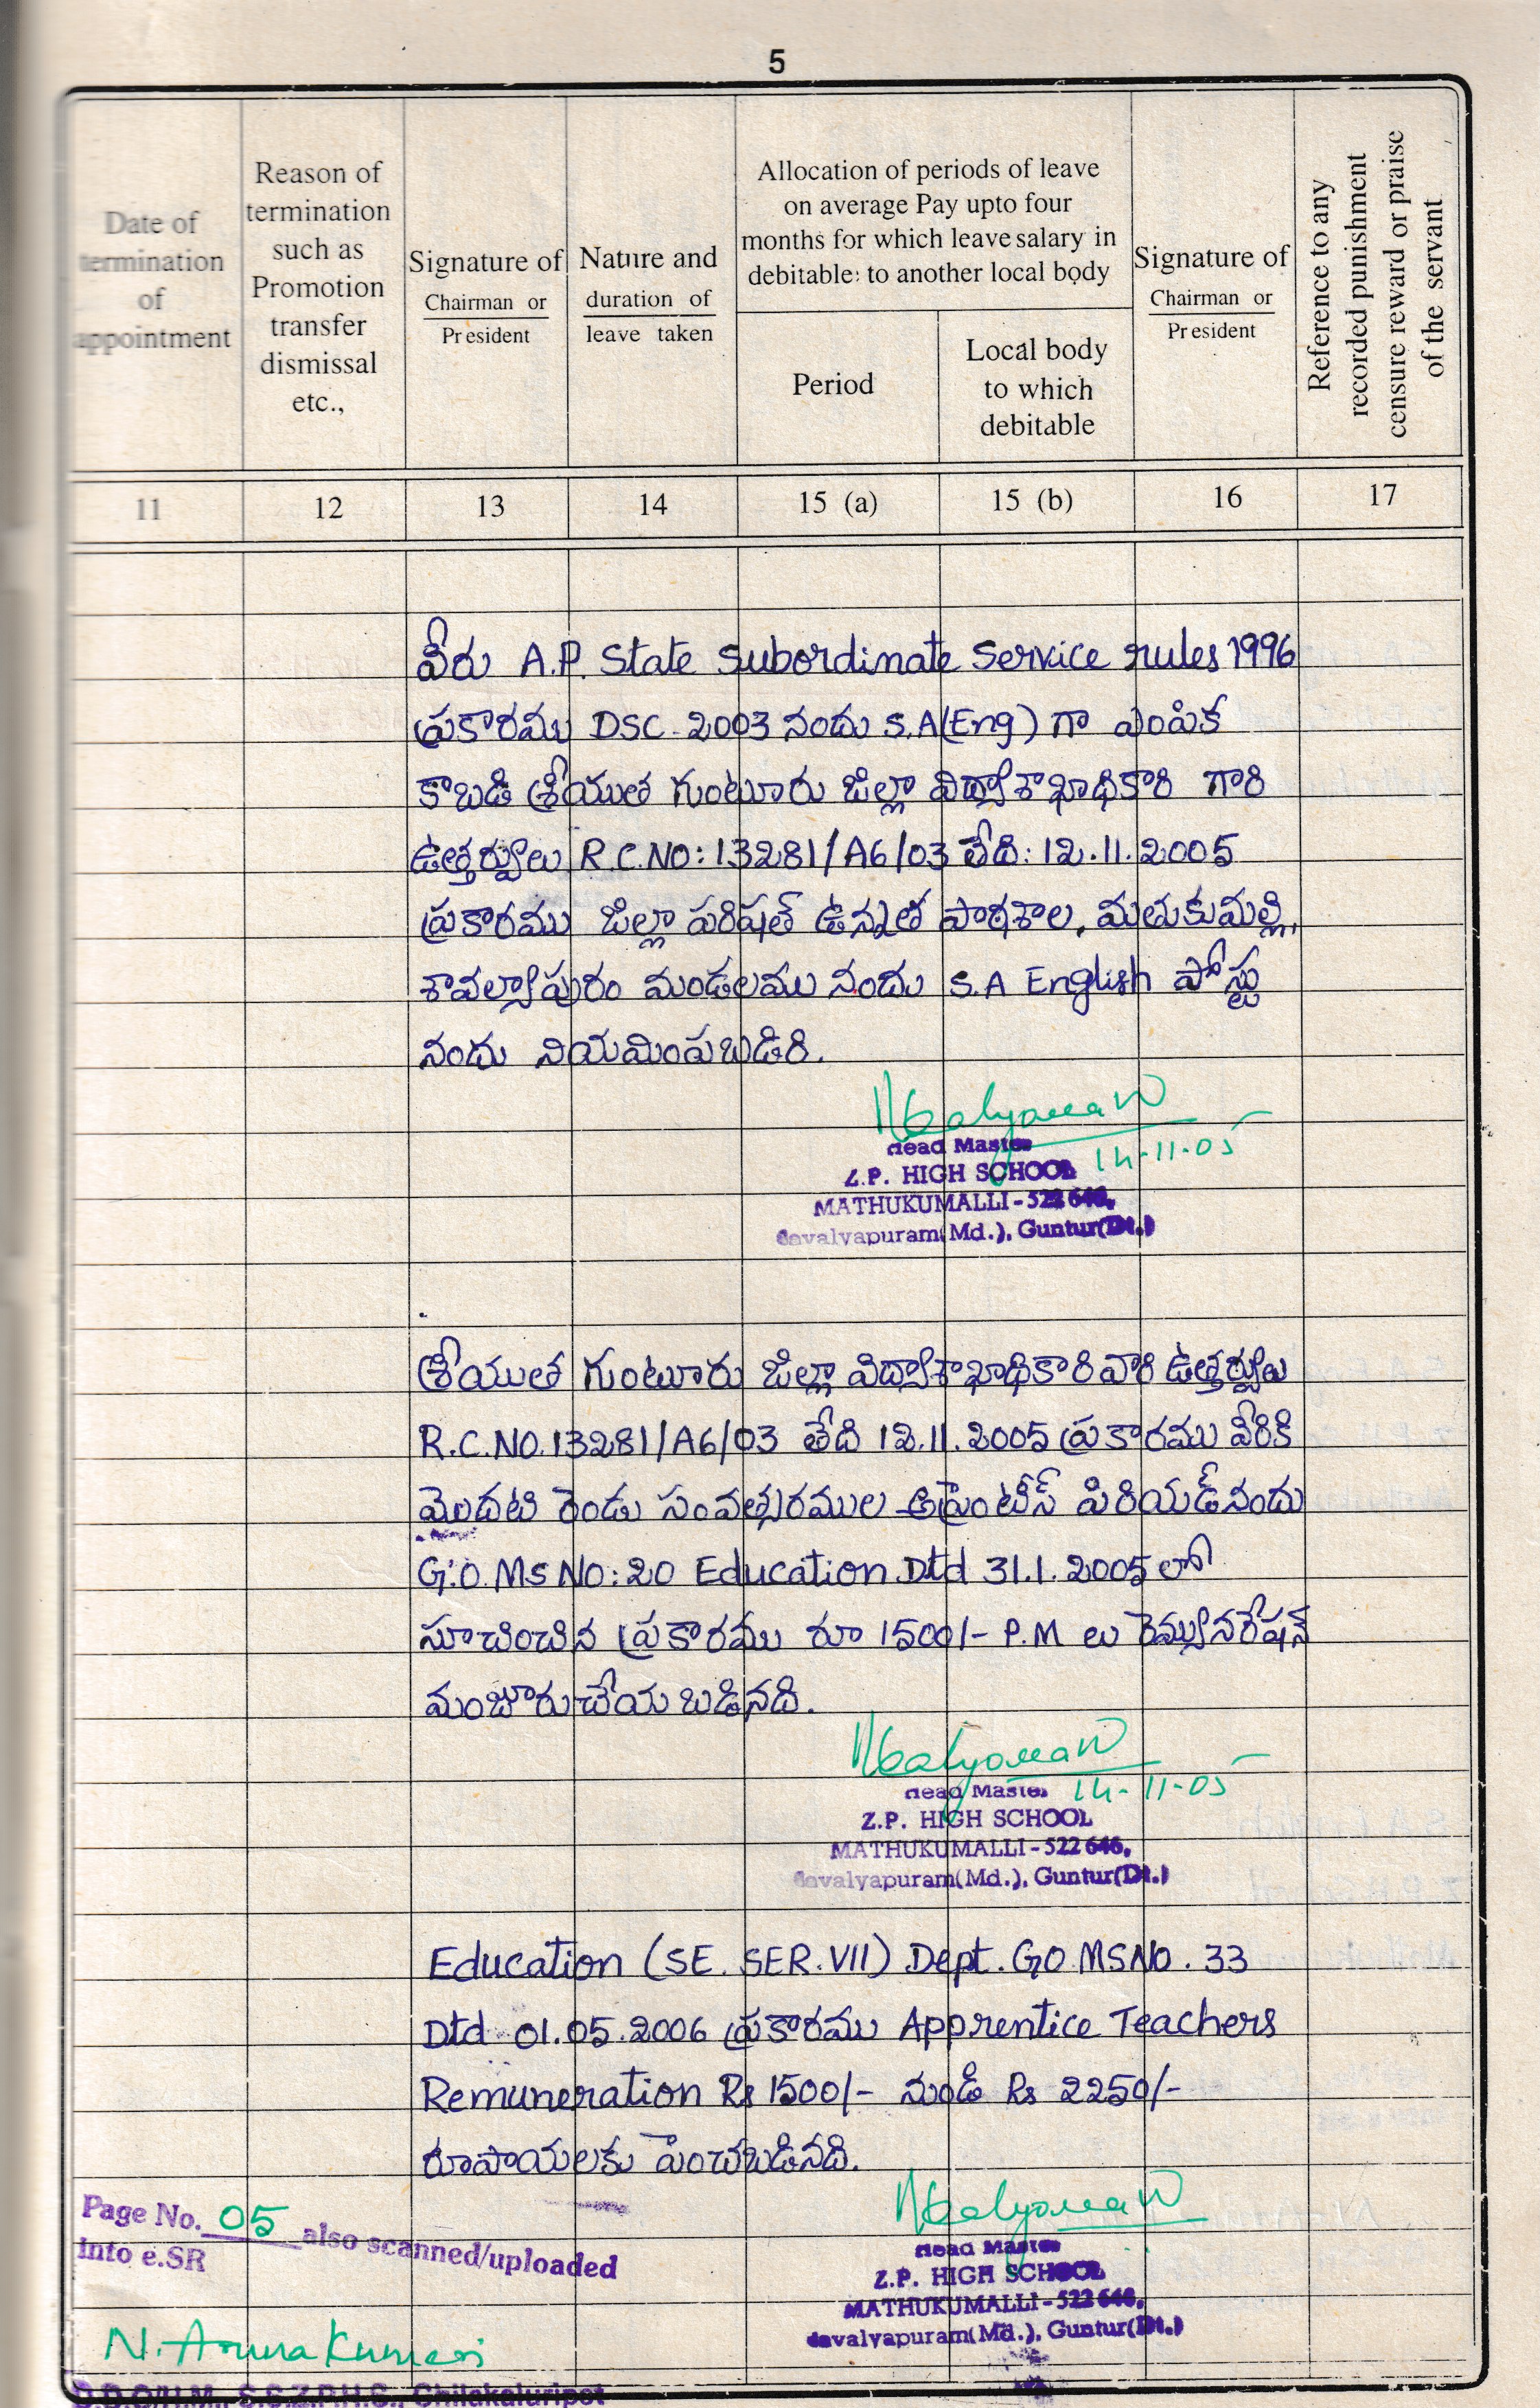 5
Date of termination of appointment
Reason of termination such as Promotion transfer dismissal etc.,
Signature of Chairman or President
Nature and duration of leave taken
Allocation of periods of leave on average Pay upto four months for which leave salary in debitable to another local body
Period
Local body to which debitable
Signature of Chairman or President
Reference to any recorded punishment censure reward or praise of the servant
11 12 13 14 15 (a) 15 (b) 16 17
వీరు A.P. State Subordinate Service rules 1996
ప్రకారము DSC-2003 నందు S.A(Eng) గా ఎంపిక
కాబడి శ్రీయుత గుంటూరు జిల్లా విద్యాశాఖాధికారి గారి
ఉత్తర్వులు R.C.NO: 13281/A6/03 తేది: 12.11.2005
ప్రకారము జిల్లా పరిషత్ ఉన్నత పాఠశాల, మతుకుమల్లి,
శావల్యాపురం మండలము నందు S.A English పోస్టు
నందు నియమింపబడిరి.
14-11-05
Head Master
Z.P. HIGH SCHOOL
MATHUKUMALLI-522 646,
Savalyapuram(Md.), Guntur(Dt.)
శ్రీయుత గుంటూరు జిల్లా విద్యాశాఖాధికారి వారి ఉత్తర్వులు
R.C.NO.13281/A6/03 తేది 12.11.2005 ప్రకారము వీరికి
మొదటి రెండు సంవత్సరముల అప్రెంటీస్ పిరియడ్ నందు
G.O.MS NO: 20 Education Dtd 31.1.2005 లో
సూచించిన ప్రకారము రూ 1500/- P.M లు రెమ్యునరేషన్
మంజూరు చేయబడినది.
14-11-05
Head Master
Z.P. HIGH SCHOOL
MATHUKUMALLI-522 646,
Savalyapuram(Md.), Guntur(Dt.)
Education (SE. SER.VII) Dept. GO MSNO. 33
Dtd 01.05.2006 ప్రకారము Apprentice Teachers
Remuneration Rs 1500/- నుండి Rs 2250/-
రూపాయలకు పెంచబడినది.
Head Master
Z.P. HIGH SCHOOL
MATHUKUMALLI-522 646,
Savalyapuram(Md.), Guntur(Dt.)
Page No. 05 also scanned/uploaded
into e.SR
N. Aruna Kumari
D.D.O/H.M., S.S.Z.P.H.S., Chilakaluripet